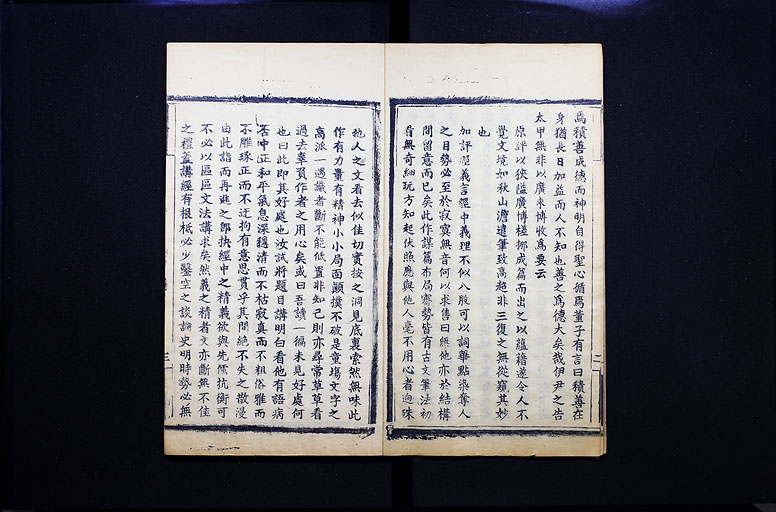 爲積善成德而神明自得聖心循焉董子有言曰積善在
身猶長日加益而人不知也善之爲德大矣哉伊尹之告
太甲無非以廣求博收爲要云
原評以狹隘廣博搓挪成篇而出之以蘊藉遂令人不
覺文境如秋山澹遠筆致高超非三復之無從窺其妙
也
加評經義言經中義理不似八股可以詞華點染奪人
之目勢必至於寂寞無音何以求售曰無他亦於結構
間留意而已矣此作謀篇布局審勢皆有古文筆法初
看無奇細玩方知起伏照應與他人毫不用心者迥殊
二
他人之文看去似佳切實按之洞見底裏索然無味此
作有力量有精神小小局面顛撲不破是童塲文字之
高派一遇識者斷不能低置非知己則亦尋常草草看
過去辜負作者之用心矣或曰吾讀一徧未見好處何
也曰此即其好處也汝試將題目講明白看他有語病
否中正和平氣息深穩清而不枯寂真而不粗俗雅而
不雕琢正而不迂拘有意思貫乎其間絕不失之散漫
由此詣而再進之即抉經中之精義欲與先儒抗衡可
不必以區區文法講求矣然義之精者文亦斷無不佳
之禮蓋講經有根柢必少鑿空之談論史明時勢必無
三